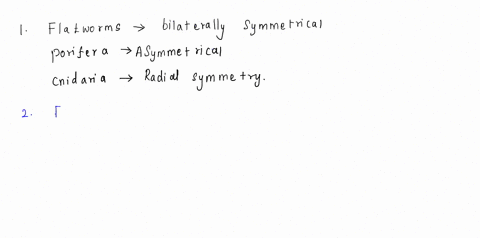 1. Flatworms → bilaterally symmetrical
porifera → ASymmetrical
cnidaria → Radial symmetry.
2.